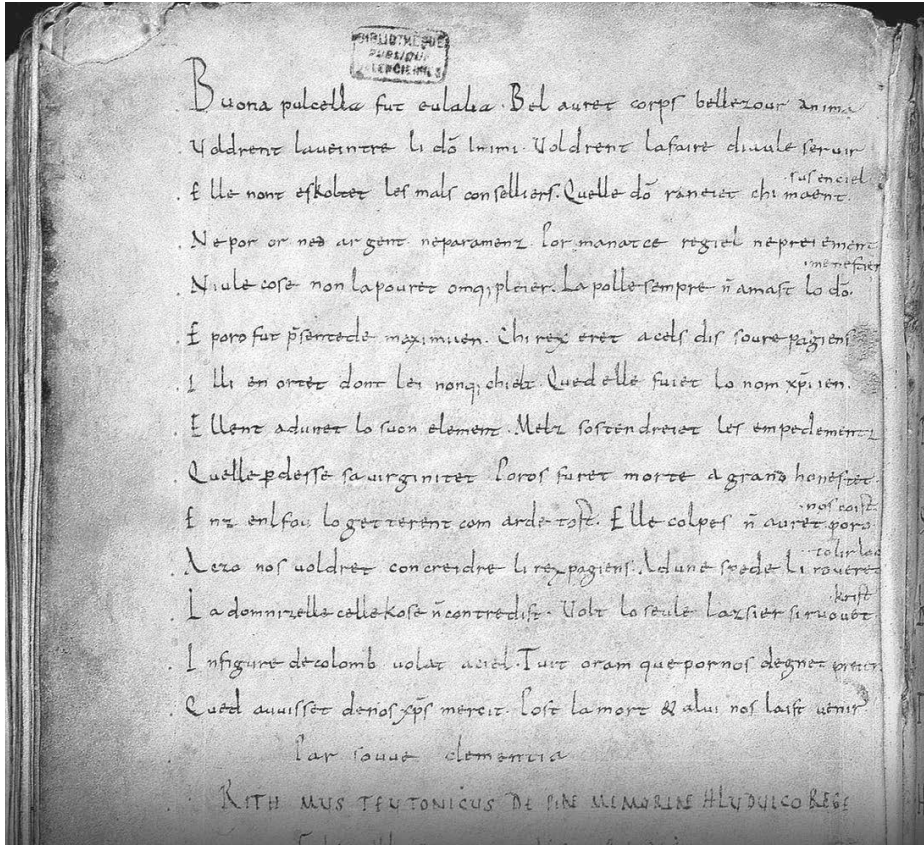 BIBLIOTHÈQUE
PUBLIQUE
VALENCIENNES
Buona pulcella fut eulalia. Bel auret corps bellezour anima
Voldrent laueintre li dõ Inimi. Voldrent lafaire diaule seruir
Elle nont eskoltet les mals conselliers. Quelle dõ raneiet chi maent
sus en ciel.
Ne por or ned argent neparamenz. Por manatce regiel ne preiement
Niule cose non lapouret omq; pleier. La polle sempre ñ amast lo dõ
menestier.
E poro fut p̃sentede maximiien. Chi rex eret a cels dis soure pagiens
Illi en ortet dont lei nonq; chielt. Qued elle fuiet lo nom xp̃iien.
Ellent adunet lo suon element. Melz sostendreiet les empedementz
Quelle ꝑdesse sa virginitet. Poros furet morte a grand honestet.
Enz enl fou lo getterent com arde tost. Elle colpes ñ auret poro
nos coist.
Aezo nos voldret concreidre li rex pagiens. Ad une spede li roueret
tolir lo
La domnizelle celle kose ñ contredist. Volt lo seule lazsier si ruouet
krist.
In figure de colomb volat a ciel. Tuit oram que por nos degnet preier.
Qued auuisset de nos xp̃s mercit. Post la mort & a lui nos laist venir
Par souue clementia
RITHMUS TEUTONICUS DE PIAE MEMORIAE HLUDUICO REGE